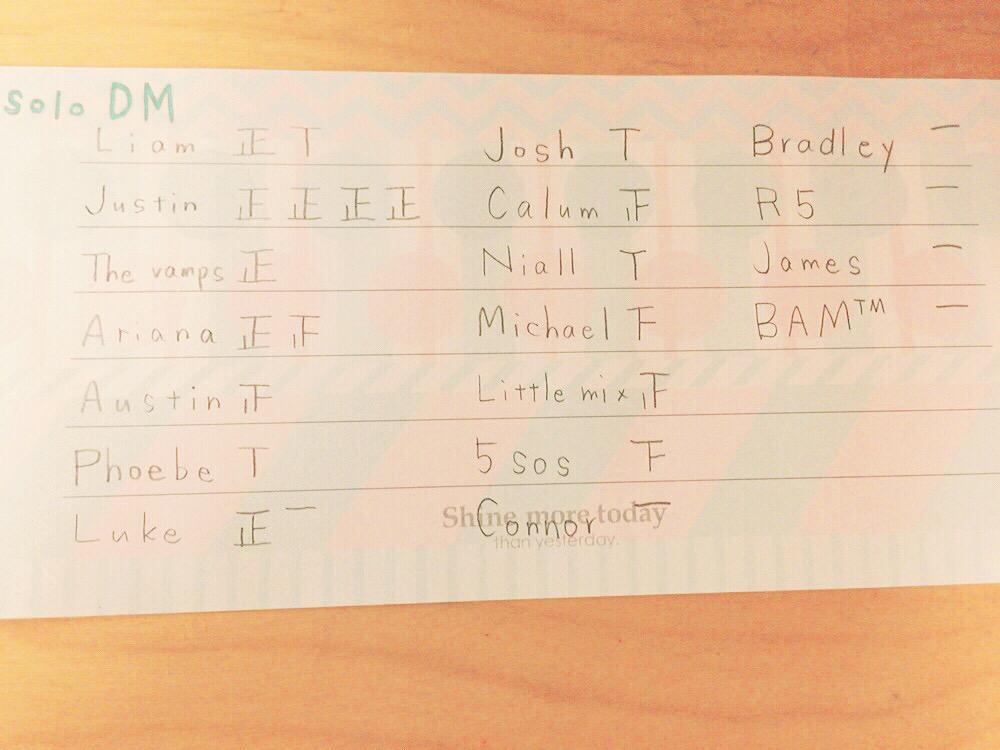 solo DM
Liam 正 T Josh T Bradley 一
Justin 正 正 正 正 Calum 𝍵 R5 一
The vamps 正 Niall T James 一
Ariana 正 𝍵 Michael F BAM™ 一
Austin 𝍵 Little mix 𝍵
Phoebe T 5sos F
Luke 正 一 Connor 一
Shine more today
than yesterday.